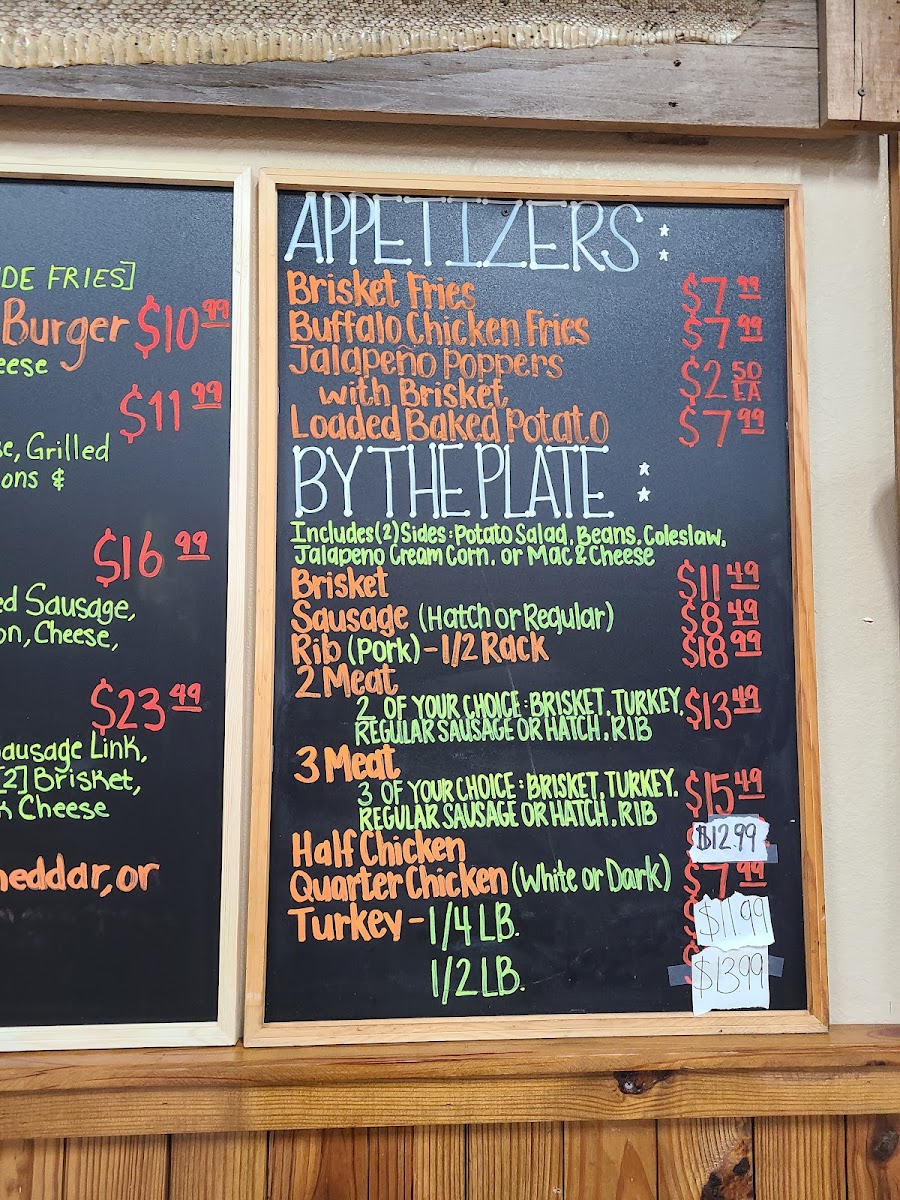 DE FRIES]
Burger $10.99
eese
$11.99
se, Grilled
ons &
$16.99
ed Sausage,
on, Cheese,
$23.49
ausage Link,
[2] Brisket,
k Cheese
heddar, or
APPETIZERS:
Brisket Fries $7.99
Buffalo Chicken Fries $7.99
Jalapeño Poppers
with Brisket $2.50 EA
Loaded Baked Potato $7.99
BY THE PLATE:
Includes (2) Sides: Potato Salad, Beans, Coleslaw,
Jalapeno Cream Corn, or Mac & Cheese
Brisket $11.49
Sausage (Hatch or Regular) $8.49
Rib (Pork) - 1/2 Rack $18.99
2 Meat
2 OF YOUR CHOICE: BRISKET, TURKEY, $13.49
REGULAR SAUSAGE OR HATCH, RIB
3 Meat
3 OF YOUR CHOICE: BRISKET, TURKEY, $15.49
REGULAR SAUSAGE OR HATCH, RIB
Half Chicken $12.99
Quarter Chicken (White or Dark) $7.99
Turkey - 1/4 LB. $11.99
1/2 LB. $13.99